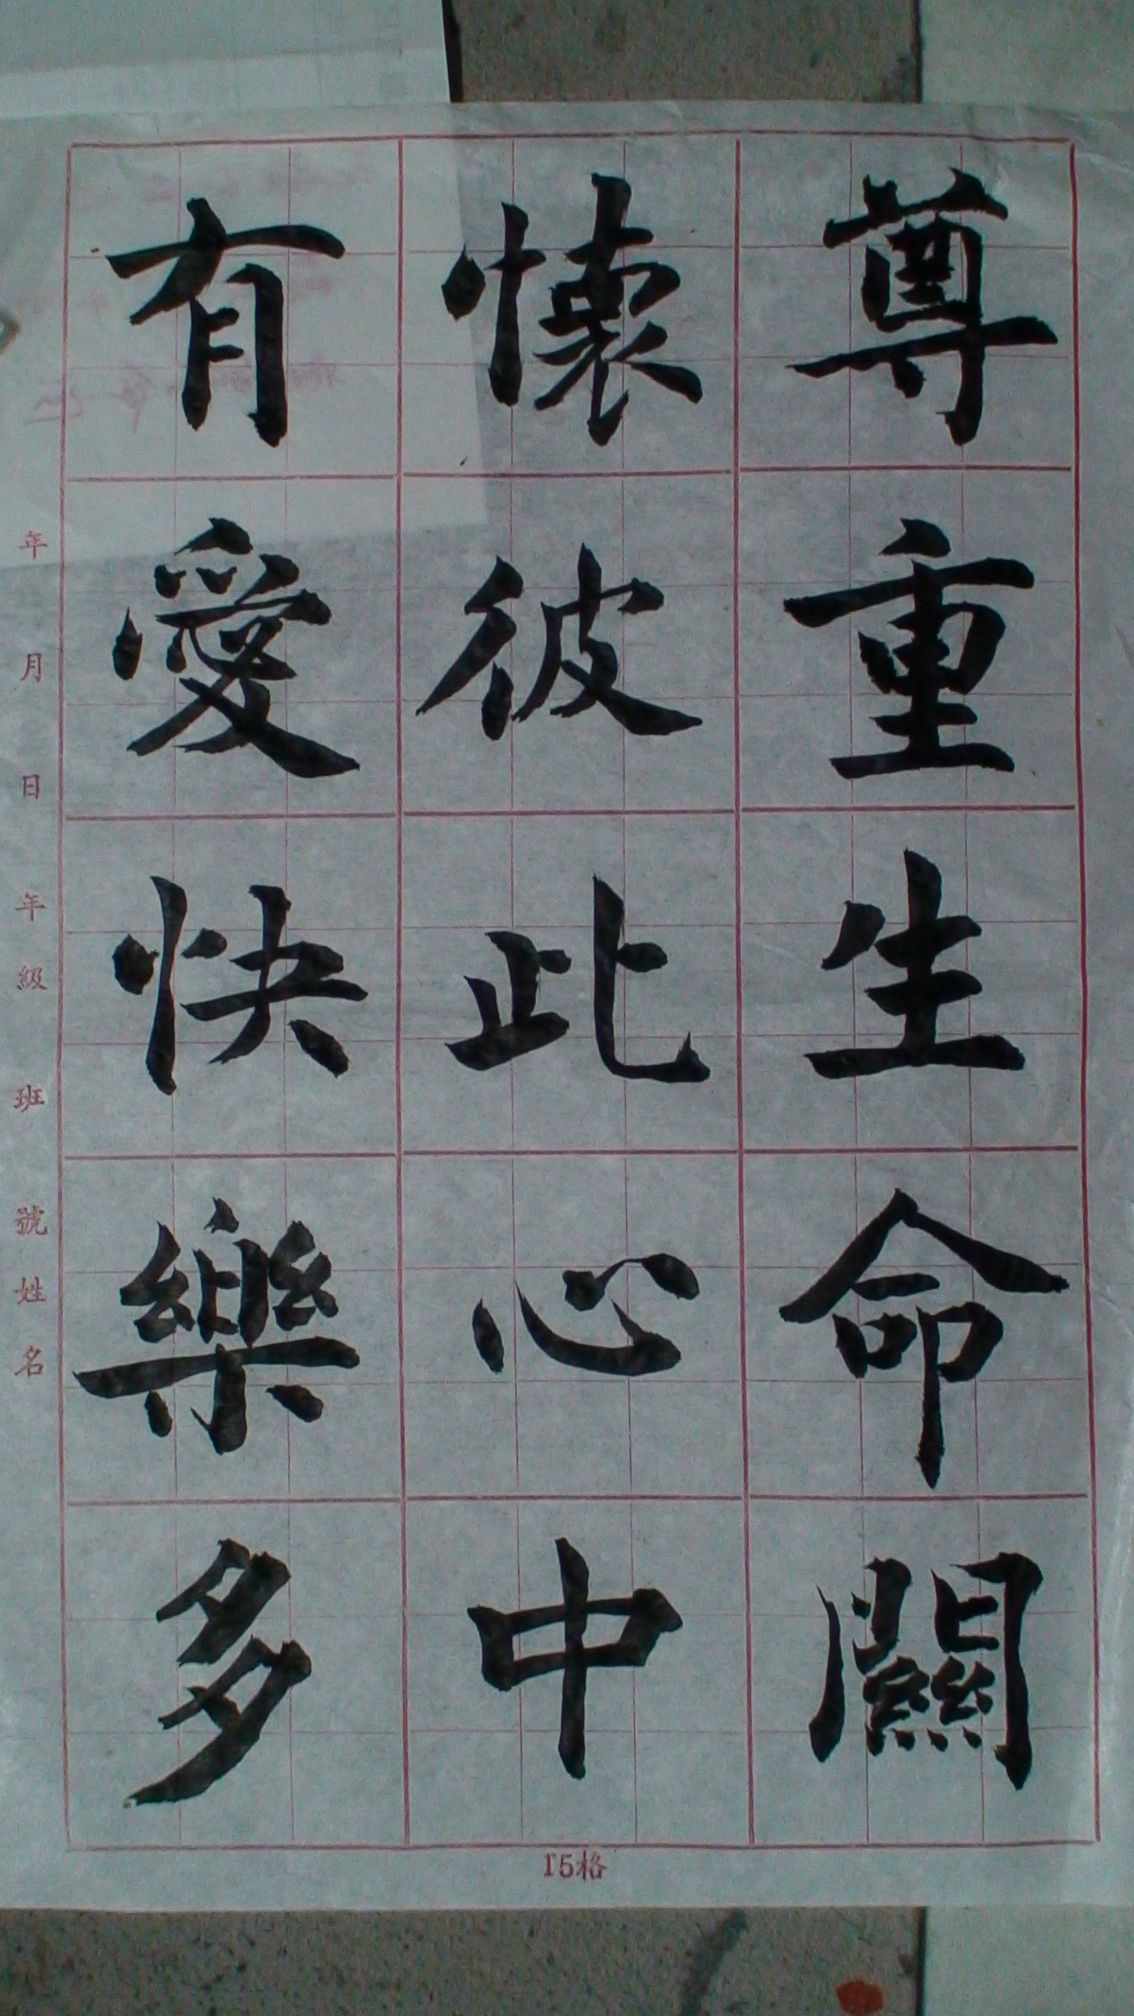 尊重生命關
懷彼此心中
有愛快樂多
年 月 日 年級 班 號 姓名
15格